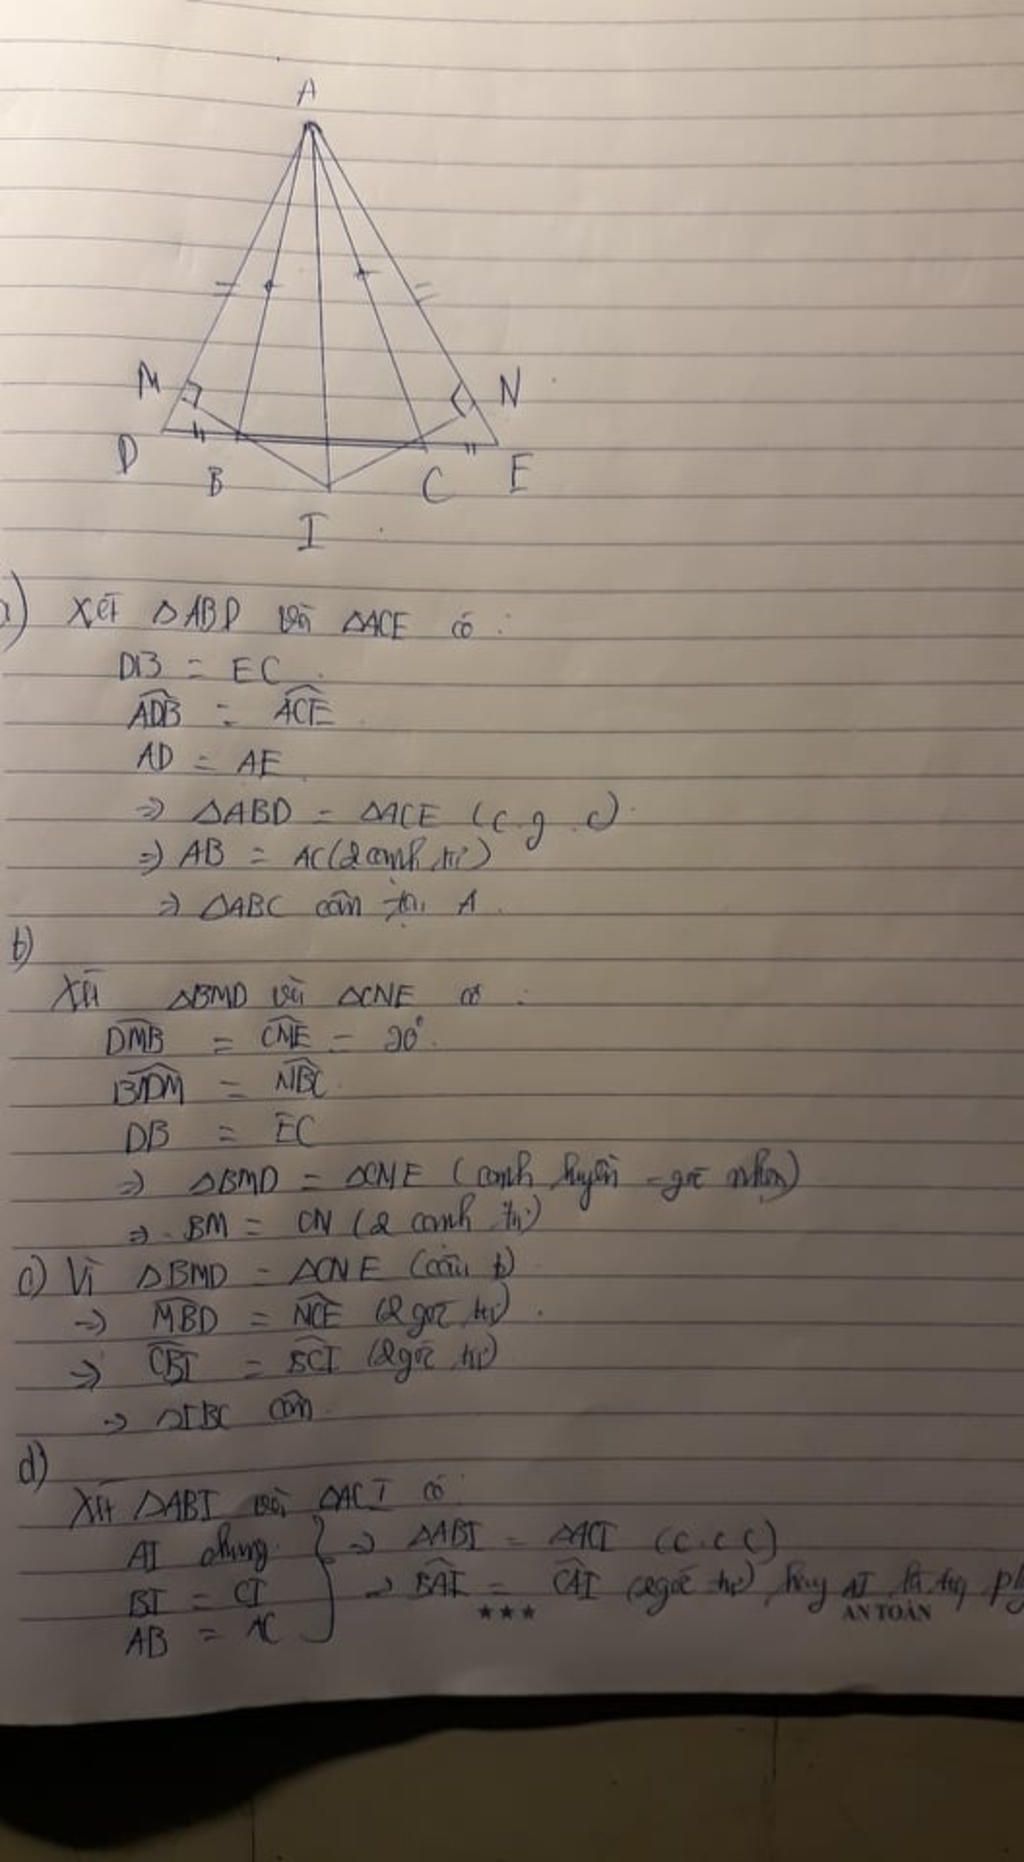 A
M
N
D
B
C
E
I
a) Xét ΔABD và ΔACE có :
DB = EC
ADB = ACE
AD = AE
=> ΔABD = ΔACE (c.g.c)
=> AB = AC (2 cạnh tư)
=> ΔABC cân tại A.
b)
Xét ΔBMD và ΔCNE có :
DMB = CNE = 90°.
BDM = NBC
DB = EC
=> ΔBMD = ΔCNE (cạnh huyền - góc nhọn)
=> BM = CN (2 cạnh tư)
c) Vì ΔBMD = ΔCNE (câu b)
=> MBD = NCE (2 góc tư).
=> CBI = BCI (2 góc tư)
=> ΔIBC cân
d)
Xét ΔABI và ΔACI có
AI chung } => ΔABI = ΔACI (c.c.c)
BI = CI => BAI = CAI (2 góc tư) hay AI là tia
AB = AC
★★★ AN TOÀN